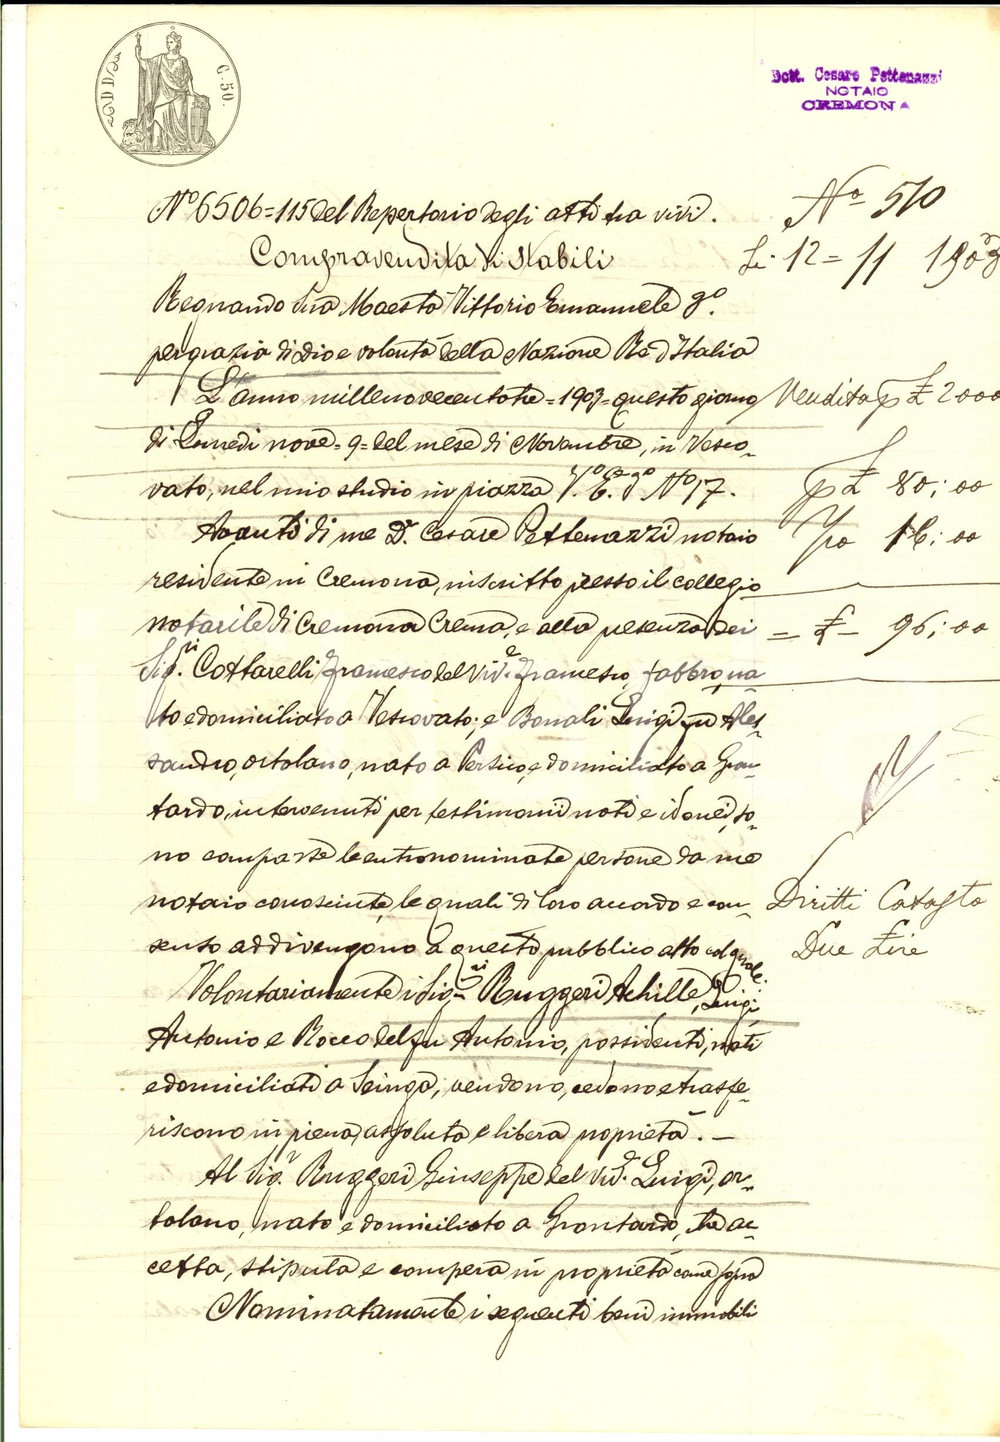 C. 50.
Dott. Cesare Pettenazzi
NOTAIO
CREMONA
Nº 6506=115 del Repertorio degli atti tra vivi.
Compravendita di Stabili
Regnando Sua Maestà Vittorio Emanuele 3º.
per grazia di Dio e volontà della Nazione Re d'Italia
L'anno millenovecentotre =1903= questo giorno
di Lunedì nove =9= del mese di Novembre, in Vesco-
vato, nel mio studio in piazza V.º E.e 3º Nº 17.
Avanti di me Dr. Cesare Pettenazzi notaio
residente in Cremona, inscritto presso il collegio
notarile di Cremona Crema, e alla presenza dei
Sigri. Cottarelli Francesco del viv.e Francesco, fabbro, na-
to e domiciliato a Vescovato; e Bonali Luigi fu Ales-
sandro, ortolano, nato a Persico, e domiciliato a Gron-
tardo, intervenuti per testimonii noti e idonei, so-
no comparse le entronominate persone da me
notaio conosciute, le quali di loro accordo e con-
senso addivengono a questo pubblico atto col quale:
Volontariamente i Sigri Ruggeri Achille, Luigi,
Antonio e Rocco del fu Antonio, possidenti, nati
e domiciliati a vendono, cedono e trasfe-
riscono in piena, assoluta e libera proprietà. —
Al Sigr. Ruggeri Giuseppe del viv.e Luigi, or-
tolano, nato e domiciliato a Grontardo, che ac-
cetta, stipula e compera in proprietà come sopra
Nominatamente i seguenti beni immobili
Nº 510
Li 12=11 1903
Vendita p £ 2000
p £ 80; 00
16: 00
= £ - 96; 00
Diritti Catasto
Due Lire